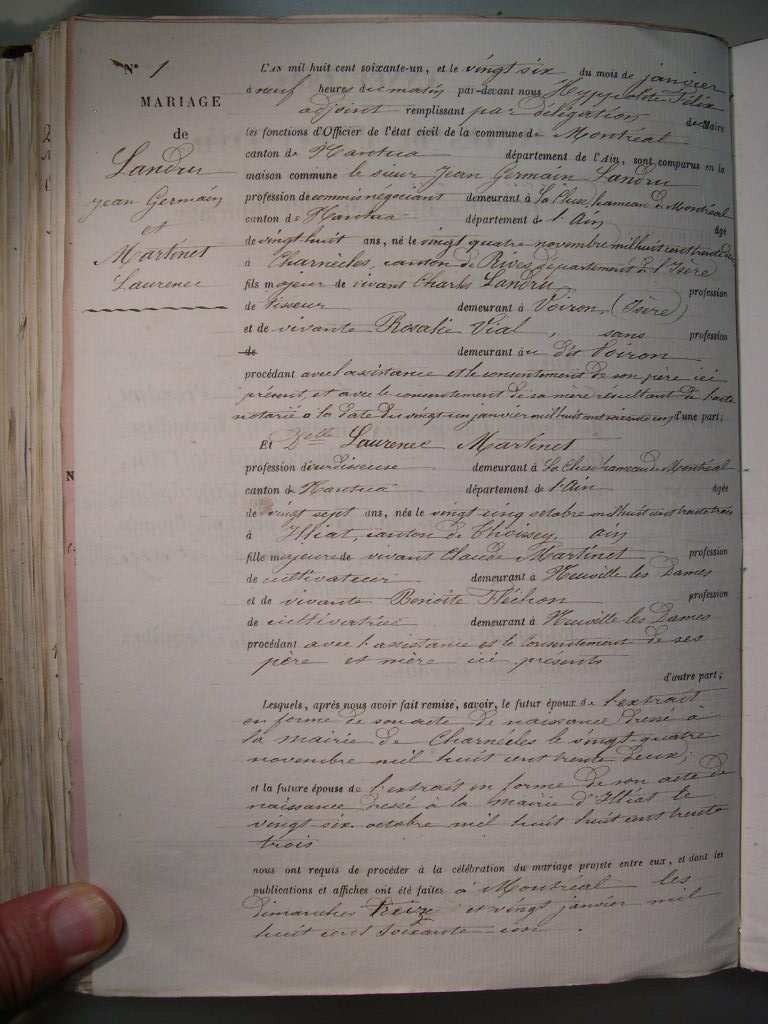 N° 1
MARIAGE
de
Landru
Jean Germain
et
Martinet
Laurence
L'AN mil huit cent soixante-un, et le vingt six du mois de janvier
à neuf heures du matin par-devant nous Hyppolite Félix
adjoint remplissant par délégation du Maire
les fonctions d'Officier de l'état civil de la commune de Montréal
canton de Nantua département de l'Ain, sont comparus en la
maison commune le sieur Jean Germain Landru
profession de commis négociant demeurant à La Cluse, hameau de Montréal
canton de Nantua département de l'Ain âgé
de vingt huit ans, né le vingt quatre novembre mil huit cent trente deux
à Charnècles, canton de Rives, département de l'Isère
fils majeur de vivant Charles Landru profession
de tisseur demeurant à Voiron, (Isère)
et de vivante Rosalie Vial, sans profession
de demeurant au dit Voiron
procédant avec l'assistance et le consentement de son père ici
présent, et avec le consentement de sa mère résultant de l'acte
notarié à la date du vingt un janvier mil huit cent soixante un d'une part;
Et Delle Laurence Martinet
profession d'ourdisseuse demeurant à La Cluse hameau de Montréal
canton de Nantua département de l'Ain âgée
de vingt sept ans, née le vingt cinq octobre mil huit cent trente trois
à Illiat, canton de Thoissey, Ain
fille majeure de vivant Claude Martinet profession
de cultivateur demeurant à Neuville les Dames
et de vivante Benoîte Fléchon profession
de cultivatrice demeurant à Neuville les Dames
procédant avec l'assistance et le consentement de ses
père et mère ici présents
d'autre part;
Lesquels, après nous avoir fait remise, savoir, le futur époux de l'extrait
en forme de son acte de naissance dressé à
la mairie de Charnècles le vingt-quatre
novembre mil huit cent trente deux;
et la future épouse de l'extrait en forme de son acte de
naissance dressé à la mairie d'Illiat le
vingt-six octobre mil huit huit cent trente
trois
nous ont requis de procéder à la célébration du mariage projeté entre eux, et dont les
publications et affiches ont été faites à Montréal les
dimanches treize et vingt janvier mil
huit cent soixante-un.